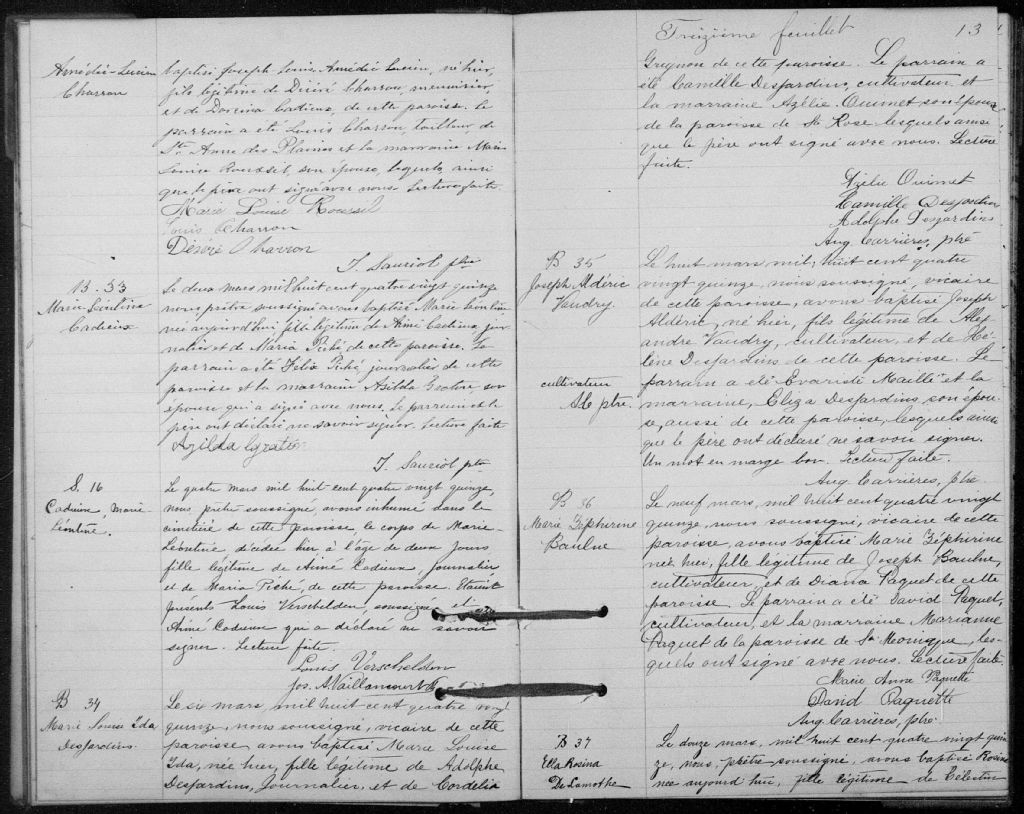 Amédée-Lucien
Charron
baptisé Joseph Louis Amédée Lucien, né hier,
fils légitime de Désiré Charron, menuisier
et de Dorcina Cadieux, de cette paroisse. Le
parrain a été Louis Charron, tailleur, de
Ste Anne des Plaines et la marraine Marie
Louise Roussil, son épouse, lesquels ainsi
que le père ont signé avec nous. Lecture faite
Marie Louise Roussil
Louis Charron
Désiré Charron
J. Sauriol ptre
B. 33
Marie Léontine
Cadieux
Le deux mars mil huit cent quatre vingt quinze
nous prêtre soussigné avons baptisé Marie Léontine
née aujourd'hui fille légitime de Aimé Cadieux, jour-
nalier et de Maria Piché de cette paroisse. Le
parrain a été Félix Piché journalier de cette
paroisse et la marraine Azilda Gratton son
épouse qui a signé avec nous. Le parrain et le
père ont déclaré ne savoir signer. Lecture faite
Azilda Gratton
J. Sauriol ptre
S. 16
Cadieux, Marie
Léontine.
Le quatre mars mil huit cent quatre vingt quinze,
nous, prêtre soussigné, avons inhumé dans le
cimetière de cette paroisse le corps de Marie
Léontine, décédée hier à l'âge de deux jours
fille légitime de Aimé Cadieux, journalier
et de Maria Piché, de cette paroisse. Etaient
présents Louis Verschelden, soussigné et
Aimé Cadieux qui a déclaré ne savoir
signer. Lecture faite.
Louis Verschelden
Jos. A. Vaillancourt
B 34
Marie Louise Ida
Desjardins
Le six mars, mil huit cent quatre vingt
quinze, nous soussigné, vicaire de cette
paroisse avons baptisé Marie Louise
Ida, née hier, fille légitime de Adolphe
Desjardins, Journalier, et de Cordelia
Treizième feuillet 13
Gregnon de cette paroisse. Le parrain a
été Camille Desjardins, cultivateur, et
la marraine Azélie Ouimet son épouse
de la paroisse de Ste Rose lesquels ainsi
que le père ont signé avec nous. Lecture
faite.
Azélie Ouimet
Camille Desjardins
Adolphe Desjardins
Aug. Carrières, ptre
B 35
Joseph Aldéric
Vaudry
cultivateur
ptre.
Le huit mars mil, huit cent quatre
vingt quinze, nous soussigné, vicaire
de cette paroisse, avons baptisé Joseph
Aldéric, né hier, fils légitime de Alex
andre Vaudry, cultivateur, et de Hé-
lène Desjardins de cette paroisse. Le
parrain a été Evariste Maillé et la
marraine, Eliza Desjardins, son épou-
se, aussi de cette paroisse, lesquels ainsi
que le père ont déclaré ne savoir signer.
Un mot en marge bon. Lecture faite.
Aug. Carrières, ptre
B 36
Marie Zéphirine
Baulne
Le neuf mars, mil huit cent quatre vingt
quinze, nous soussigné, vicaire de cette
paroisse, avons baptisé Marie Zéphirine
née hier, fille légitime de Joseph Baulne,
cultivateur, et de Diana Paquet de cette
paroisse. Le parrain a été David Paquet,
cultivateur, et la marraine Marianne
Paquet de la paroisse de Ste Monique, les-
quels ont signé avec nous. Lecture faite.
Marie Anne Paquette
David Paquette
Aug. Carrières, ptre
B 37
Ella Rosina
De Lamothe
Le douze mars, mil huit cent quatre vingt quin
ze, nous, prêtre soussigné, avons baptisé Rosina
née aujourd'hui, fille légitime de Célestin